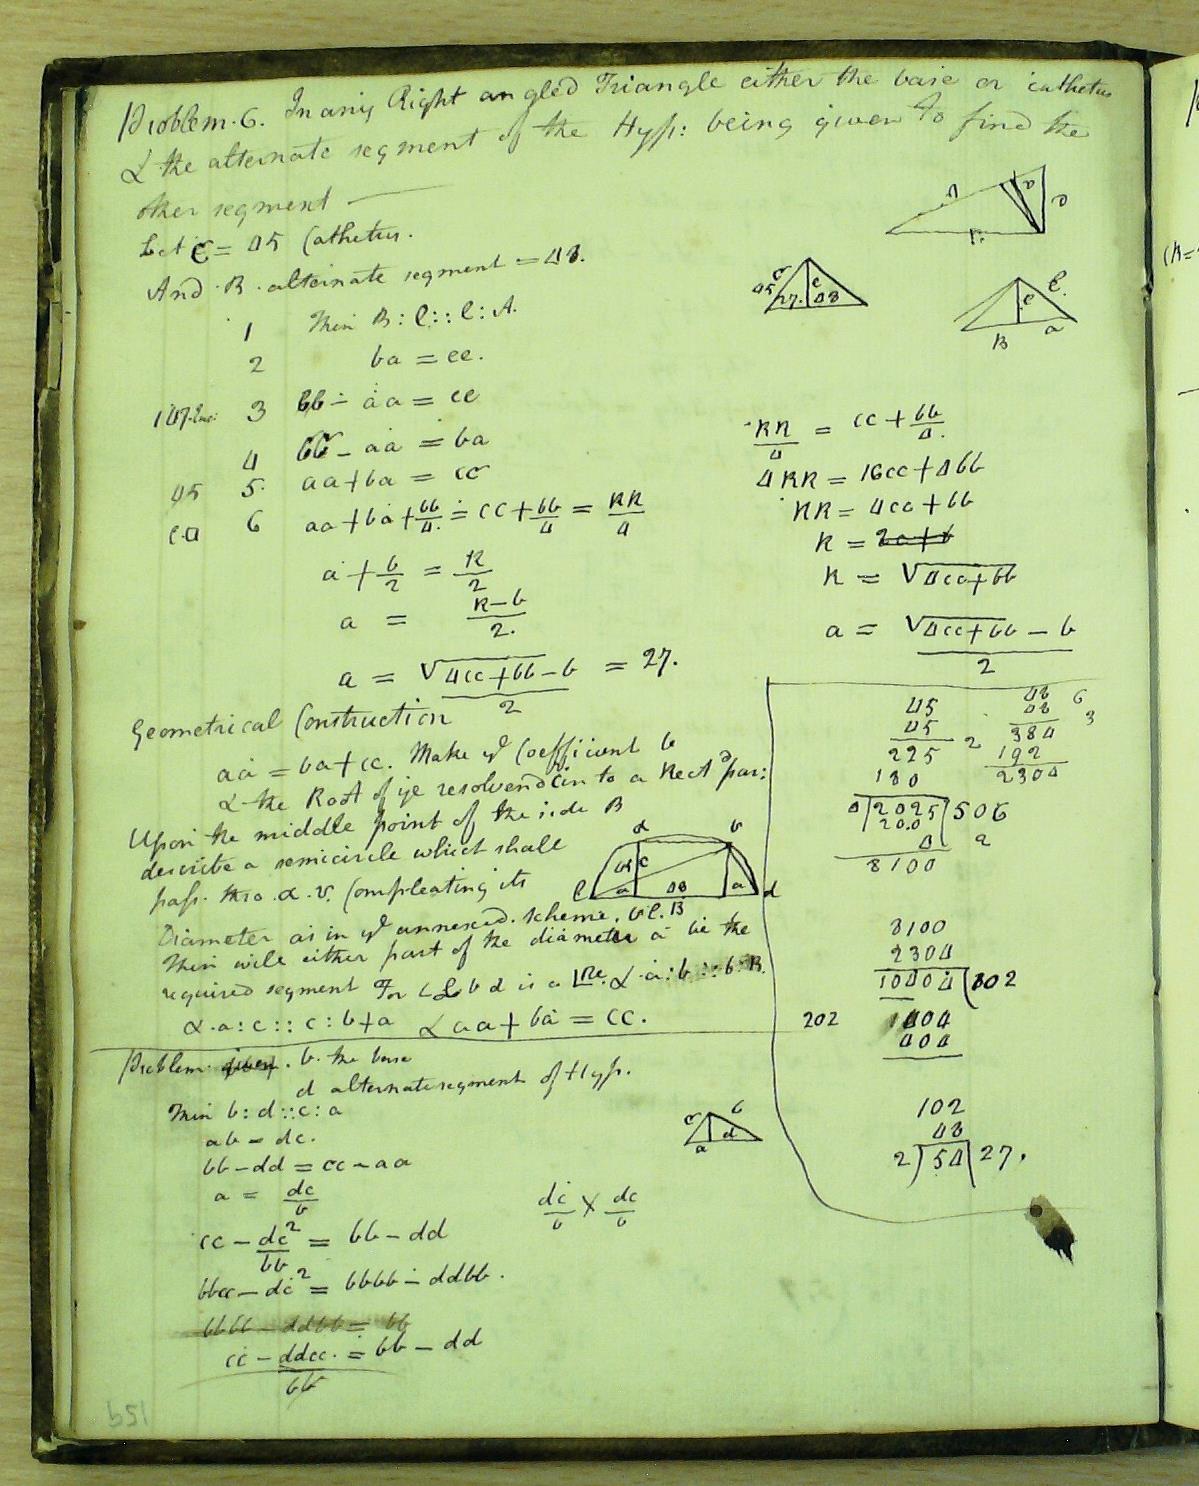 Problem. 6. In any Right angled Triangle either the base or cathetus
& the alternate segment of the Hyp: being given to find the
other segment
Let C = 45 Cathetus.
And B alternate segment = 48.
1 Then B : C :: C : A.
2 ba = ee.
3 bb - aa = ce
4 bb - aa = ba
45 5. aa + ba = cc
6 aa + ba + bb/4 = cc + bb/4 = RR/4
a + b/2 = R/2
a = R-b/2.
a = √4cc+bb - b/2 = 27.
45 c 27. 48
c e B a
RR/4 = cc + bb/4.
4RR = 16cc + 4bb
RR = 4cc + bb
R = 2c+b
R = √4cc+bb
a = √4cc+bb - b/2
Geometrical Construction
aa = ba + cc. Make ye Coefficient b
& the Root of ye resolvend C in to a Rect par:
Upon the middle point of the side B
describe a semicircle which shall
pass. thro. α. v. Compleating its
Diameter as in ye annexed. scheme.
Then will either part of the diameter a be the
required segment For
& a : c :: c : b+a & aa + ba = cc.
45 c a 48 a d
45
45
225
180
4)2025(506
200
8100
2
48
48
384
192
2304
6
3
8100
2304
10404(102
202 404
404
102
48
2)54(27.
Problem given. b. the base
d alternate segment of Hyp.
Then b : d :: c : a
ab = dc.
bb - dd = cc - aa
a = dc/b
dc/b × dc/b
cc - dc²/bb = bb - dd
bbcc - dc² = bbbb - ddbb.
bbbb - ddbb = bb
cc - ddcc/bb = bb - dd
c b a d